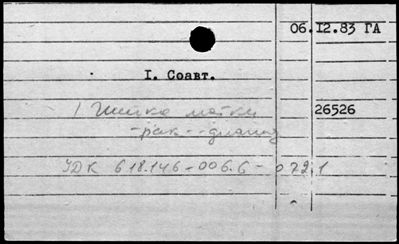 06.12.83 ГА
I. Соавт.
1 Шейка матки 26526
-рак--диагноз
УДК 618.146-006.6-072.1